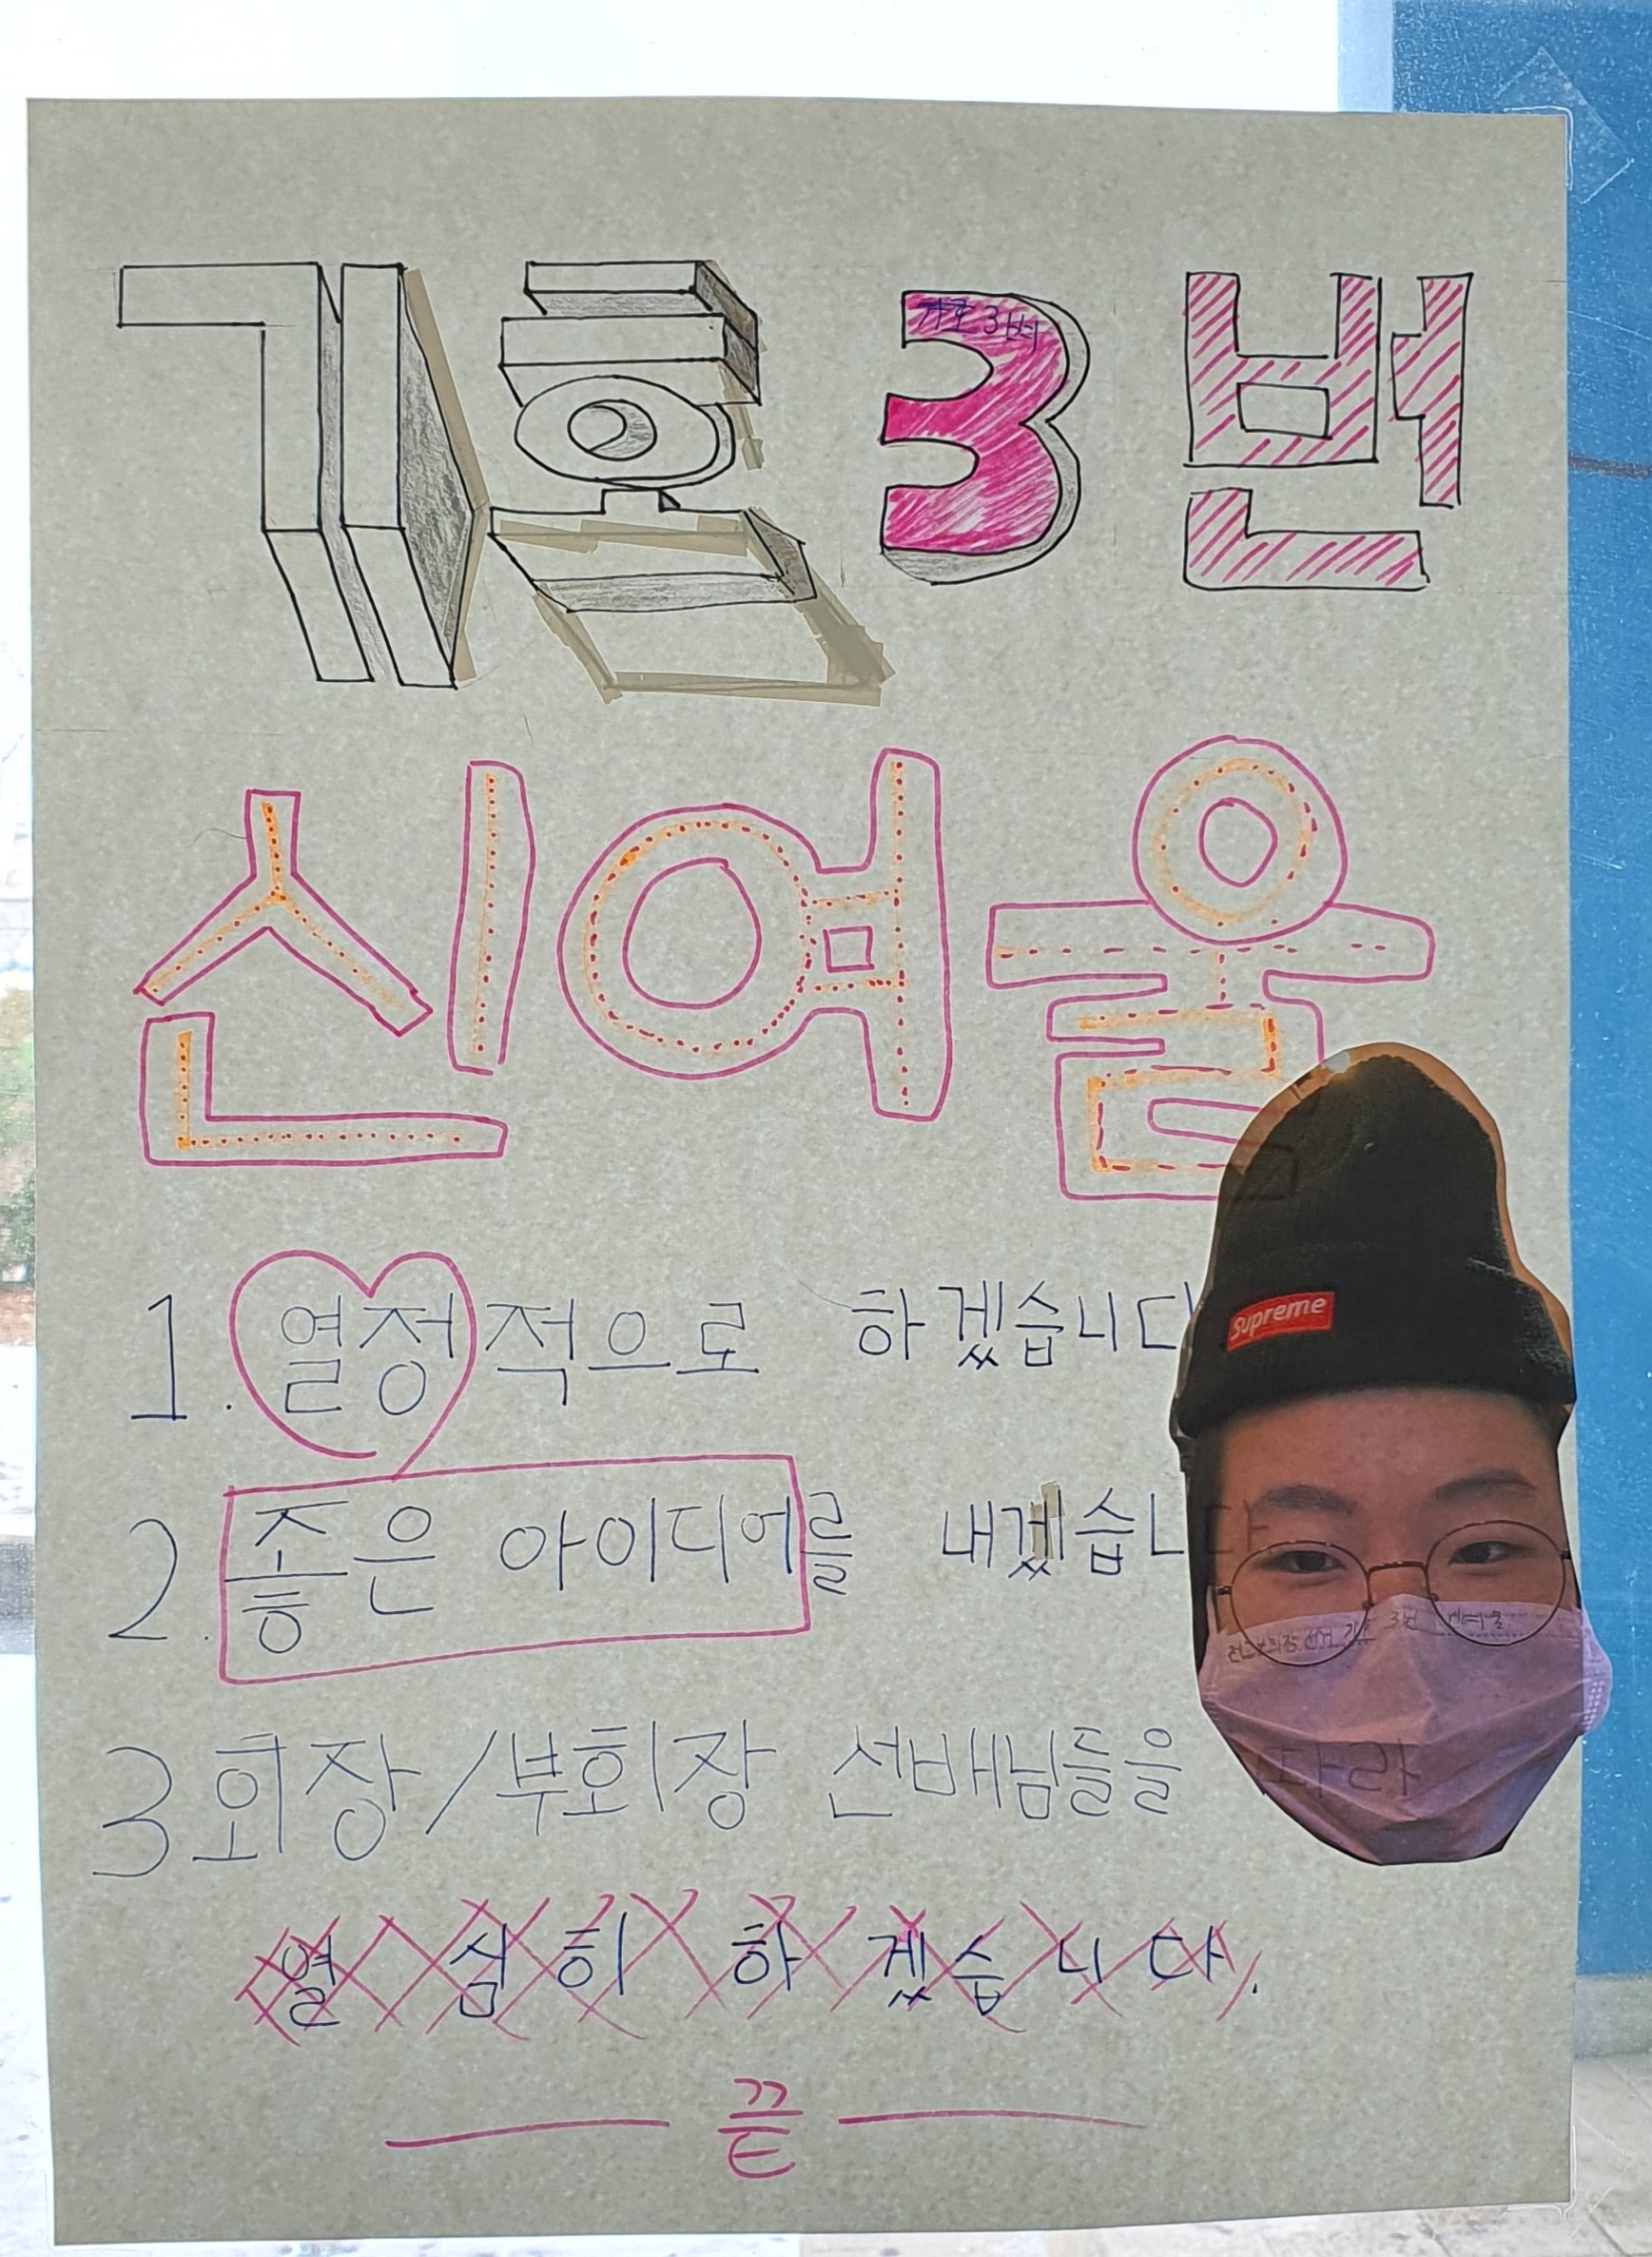 기호 3번
신여울
1. 열정적으로 하겠습니다
Supreme
2. 좋은 아이디어를 내겠습니다
3 회장/부회장 선배님들을 따라
열심히 하겠습니다.
끝